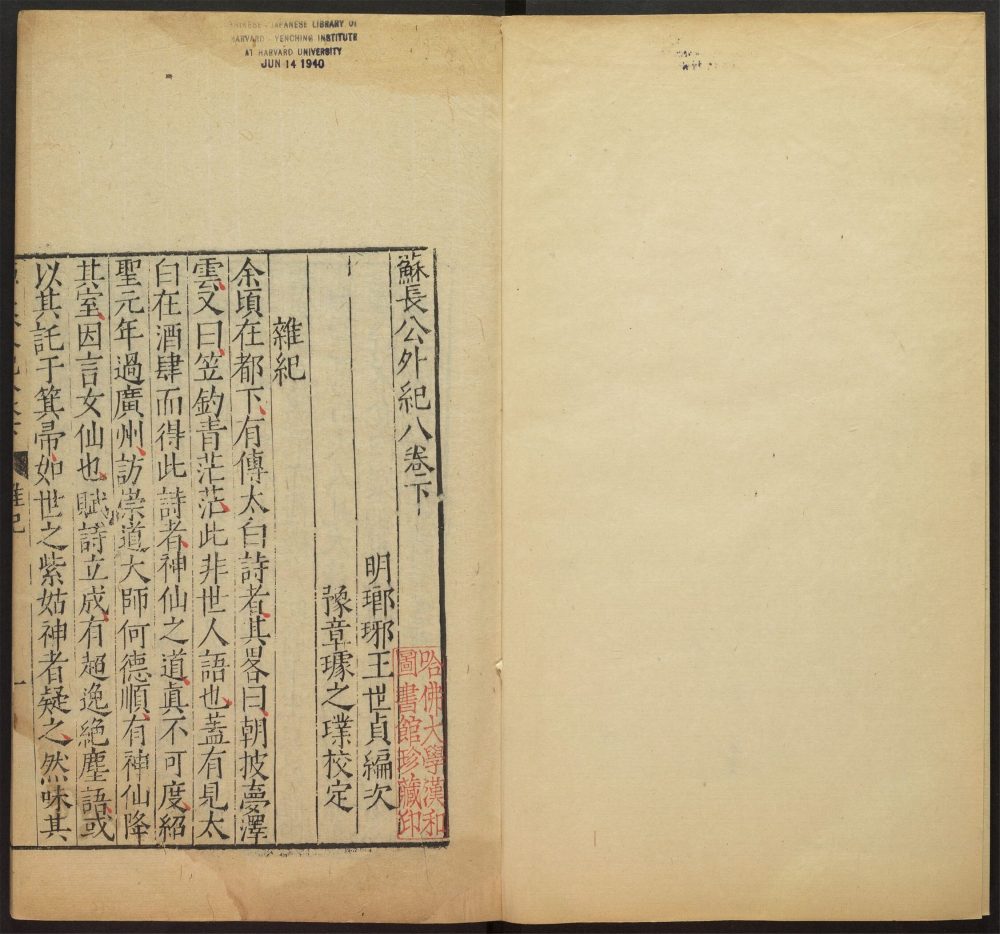 CHINESE - JAPANESE LIBRARY OF
HARVARD - YENCHING INSTITUTE
AT HARVARD UNIVERSITY
JUN 14 1940
蘇長公外紀八卷下
明瑯琊王世貞編次
豫章璩之璞校定
哈佛大學漢和
圖書館珍藏印
雜紀
余頃在都下有傳太白詩者其畧曰朝披夢澤
雲又曰笠釣青茫茫此非世人語也蓋有見太
白在酒肆而得此詩者神仙之道眞不可度紹
聖元年過廣州訪崇道大師何德順有神仙降
其室因言女仙也賦詩立成有超逸絶塵語或
以其託于箕帚如世之紫姑神者疑之然味其
雜紀
一